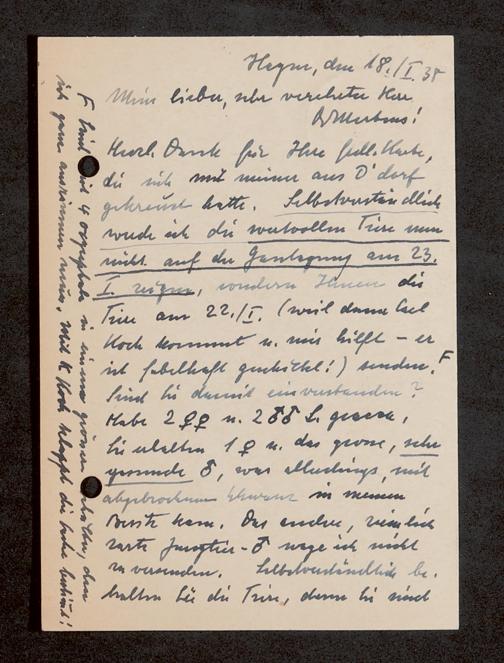 Hagen, den 18./I. 38
Mein lieber, sehr verehrter Herr
Dr. Mertens!
Herzl. Dank für Ihre frdl. Karte,
die sich mit meiner aus D'dorf
gekreuzt hatte. Selbstverständlich
werde ich die wertvollen Tiere nun
nicht auf der Gautagung am 23.
I. zeigen, sondern Ihnen die
Tiere am 22./I. (weil dann Carl
Koch kommt u. mir hilft – er
ist fabelhaft geschickt!) senden. F
Sind Sie damit einverstanden?
Habe 2 ♀♀ u. 2 ♂♂ L.
Sie erhalten 1 ♀ u. das grosse, sehr
gesunde ♂, was allerdings, mit
abgebrochnem Schwanz in meinen
Besitz kam. Das andere, ziemlich
zarte Jungtier-♂ wage ich nicht
zu versenden. Selbstverständlich be-
halten Sie die Tiere, denn Sie sind
F Sind 4 in einem grossen Behälter, den
ich ganz ausräumen muss. Mit K. Koch klappt die Sache bestimmt!